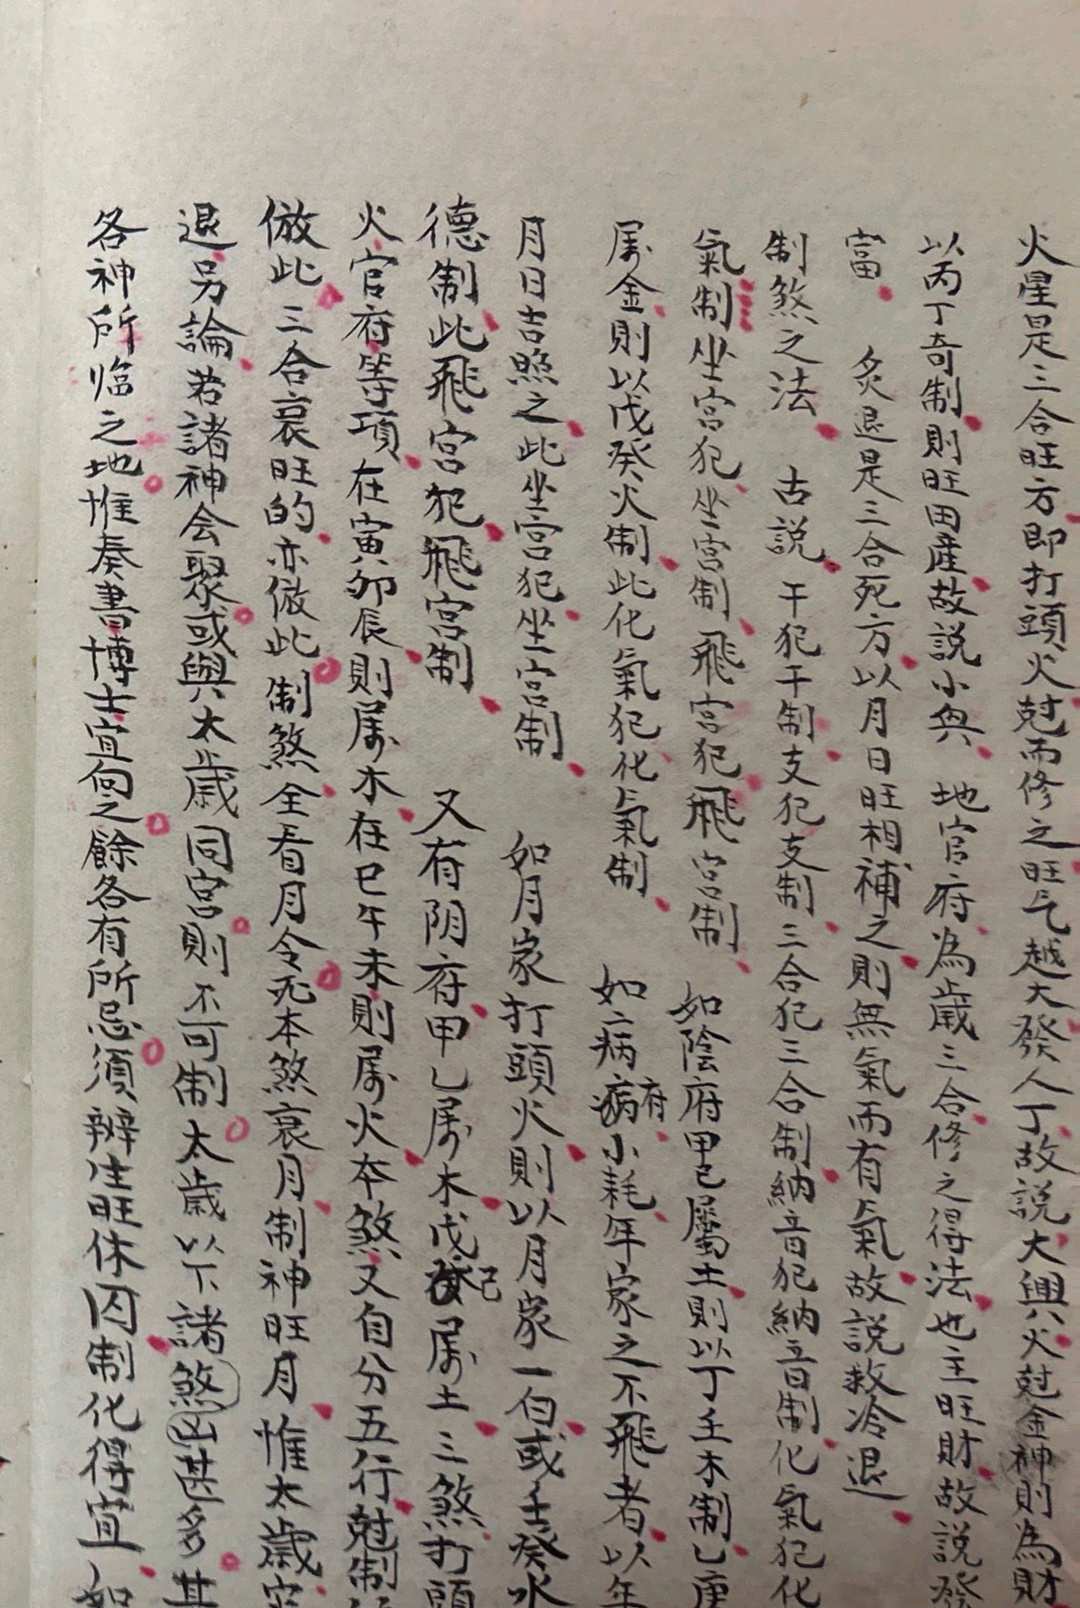 火星是三合旺方即打頭火尅而修之旺气越大發人丁故説大興火尅金神則為財
以丙丁奇制則旺田產故説小興 地官府為歲三合修之得法也主旺財故説發
富 炙退是三合死方以月日旺相補之則無氣而有氣故説救冷退
制煞之法 古説 干犯干制支犯支制三合犯三合制納音犯納音制化氣犯化
氣制坐宮犯坐宮制飛宮犯飛宮制 如陰府甲已屬土則以丁壬木制乙庚
属金則以戊癸火制此化氣犯化氣制 如病府小耗年家之不飛者以年
月日吉照之此坐宮犯坐宮制 如月家打頭火則以月家一白或壬癸水
德制此飛宮犯飛宮制 又有阴府甲乙属木戊己属土三煞打頭
火官府等項在寅卯辰則属木在巳午未則属火本煞又自分五行尅制
倣此三合衰旺的亦倣此制煞全看月令死本煞衰月制神旺月惟太歲
退另論若諸神会聚或與太歲同宮則不可制太歲以下諸煞凶甚多其
各神所临之地惟奏書博士宜向之餘各有所忌須辨生旺休囚制化得宜如